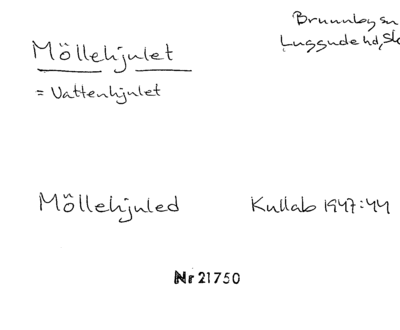 Brunnbysn
Luggude hd, Sk
Möllehjulet
= Vattenhjulet
Möllehjuled Kullab 1947:44
Nr 21750